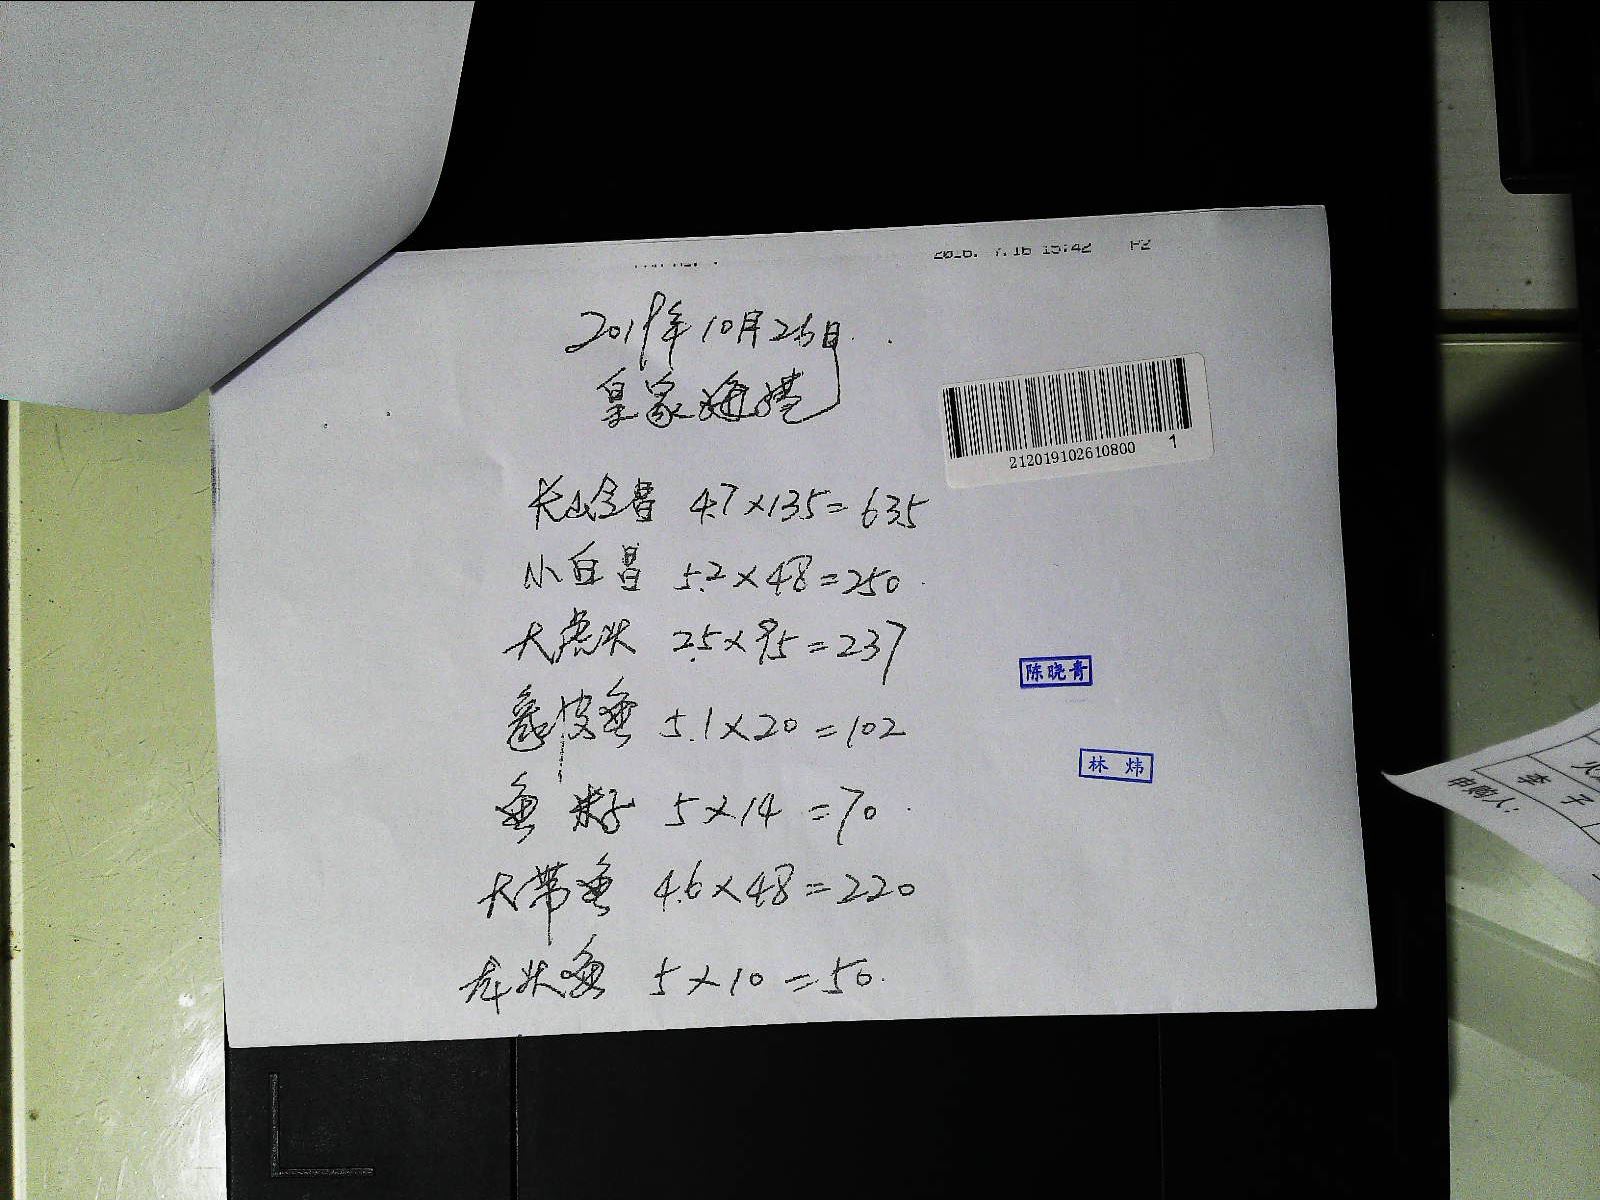 2016. 7.16 15:42 P2
2019年10月26日
皇家海港
212019102610800 1
大金昌 4.7×135=635
小白昌 5.2×48=250
大虎头 2.5×95=237
皮鱼 5.1×20=102
鱼籽 5×14=70
大带鱼 4.6×48=220
龙头鱼 5×10=50
陈晓青
林炜
李子
申购人: